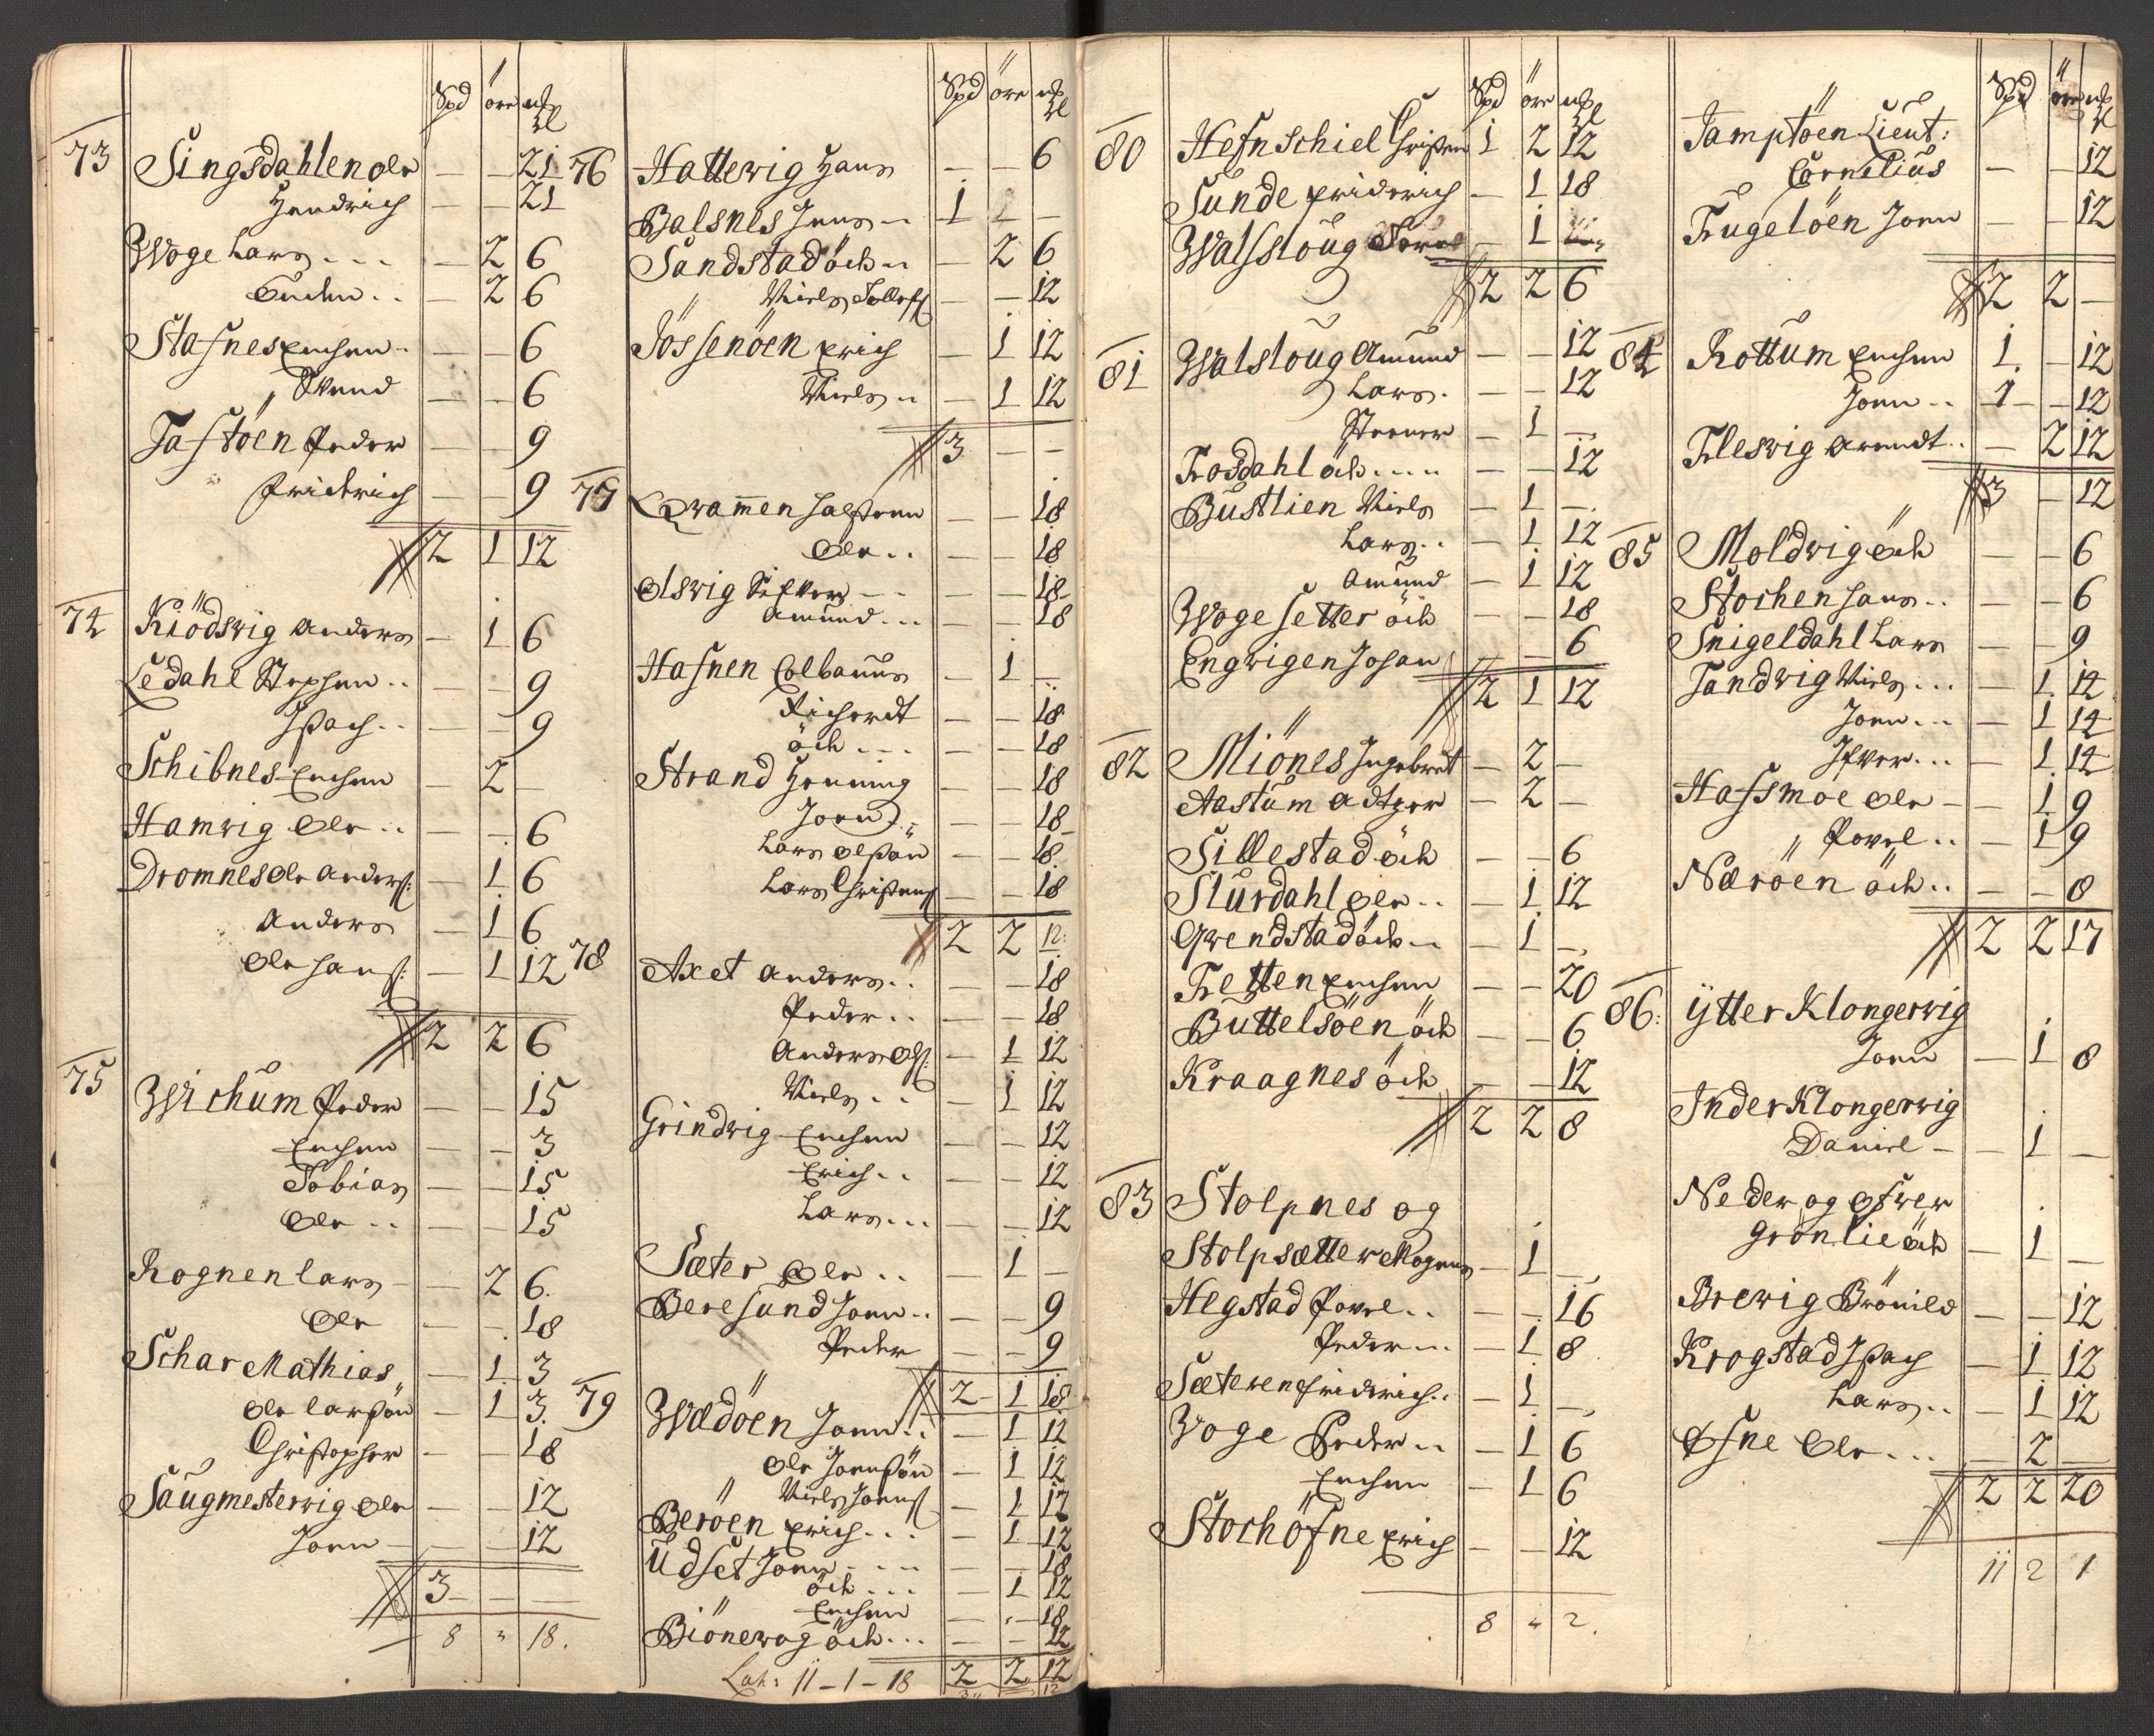 Spd öre mkl
73 Singsdahlen Ole — — 21
Hendrich — — 21
Woge Lars --- — 2 6
Enchen .. — 2 6
Stafnes Enchen - — — 6
Sivend — — 6
Tastöen Peder — — 9
Fridrich — — 9
2 1 12
74 Kiödswig Anders — 1 6
Ledahl Stephen .. — — 9
Isach .. — — 9
Schibnes Enchen — 2 —
Hamwig Ole .. — — 6
Dromnes Ole Anders: — 1 6
Anders — 1 6
Ole Hans: — 1 12
2 2 6
75 Wichum Peder — — 15
Enchen — — 3
Tobias — — 15
Ole .. — — 15
Rognen Lars — — 2 6.
Ole — — 18
Schar Mathias — 1 3
Ole Larsön — 1 3.
Christopher — — 18
Saugmesterwig Ole — — 12
Jonn — — — 12
3 — —
8 " 18.
Spd öre mkl
76 Hattewig Hans — — 6
Balsnes Jens .. 1 —
Sandstad öde .. — 2 6
Niels Tollefs — — 12
Jössenöen Erich — 1 12
Niels .. — 1 12
3 — —
77 Qwamen Halsteen — — 18
Ole .. — — 18
Olswig Sifver -- — — 18
Amund ... — — 18
Hafnen Colbanus — 1 —
Richardt — — 18
öde --- — — 18
Strand Henning — — 18
Jonn .. — — 18
Lars Olsön — — 18
Lars Christens — — 18
2 2 12
78 Axet Anders .. — — 18
Peder .. — — 18
Anders Ols: — 1 12
Niels .. — 1 12
Grindwig Enchen — — 12
Erich .. — — 12
Lars ... — — 12
Sæter Ole .. — 1 —
Beresund Jonn .. — — 9
Peder — — 9
2 1 18
79 Wædöen Jonn .. — 1 12
Ole Jonnsön — 1 12
Niels Jonns — 1 12
Beröen Erich ... — 1 12
Udset Jonn --- — — 18
öde ... — 1 12
Enchen — — 18
Biönewog öde ... — — 12
2 2 12
Lat: 11 - 1 - 18
Spd öre mkl
80 Hefnschiel Christen 1 2 12
Sunde Friderich — 1 18
Walssloug — 1
2 2 6
81 Walsloug Amund — — 12
Lars . — — 12
Steener — 1 —
Trosdahl öde .... — — 12
Bustlien Niels — 1 —
Lars .. — 1 12
Amund — 1 12
Woge Setter öde — — 18
Engwigen Johan — — 6
2 1 12
82 Miönes Ingebret — 2 —
Aastum Adtzer — 2 —
Sillestad öde — — 6
Slurdahl Ole .. — 1 12
Qwendstad öde .. — 1 —
Tretten Enchen — — 20
Buttelsöen öde — — 6
Kraagnes öde — — 12
2 2 8
83 Stolpnes og
Stolpsætter Mogens — 1 —
Hegstad Povel .. — — 16
Peder .. — 1 8
Sæteren Friderich .. — 1 —
Woge Peder .. — 1 6
Enchen — 1 6
Storhöfne Erich — — 12
8 " 2.
Spd öre mkl
Tamptöen Lieut:
Cornelius — — 12
Trugelöen Jonn — — 12
2 2 —
84 Rottum Enchen 1 — 12
Jonn .. 1 — 12
Fleswig Arendt .. — 2 12
3 — 12
85 Moldwig öde — — 6
Stochen Hans .. — — 6
Snigeldahl Lars — — 9
Sandwig Niels ... — 1 14
Jonn ... — 1 14
Ifver ... — 1 14
Hassmoe Ole — — 1 9
Povel .. — 1 9
Næröen öde .. — — 8
2 2 17
86: Ÿtter Klongerwig
Jonn — 1 8
Inder Klongerwig
Daniel — — 1 —
Neder og Öfwer
Grönlie öde — 1 —
Brewig Brönild — — 12
Krogstad Isach — 1 12
Lars .. — 1 12
Øfne Ole ... — 2 —
2 2 20
11 2 1